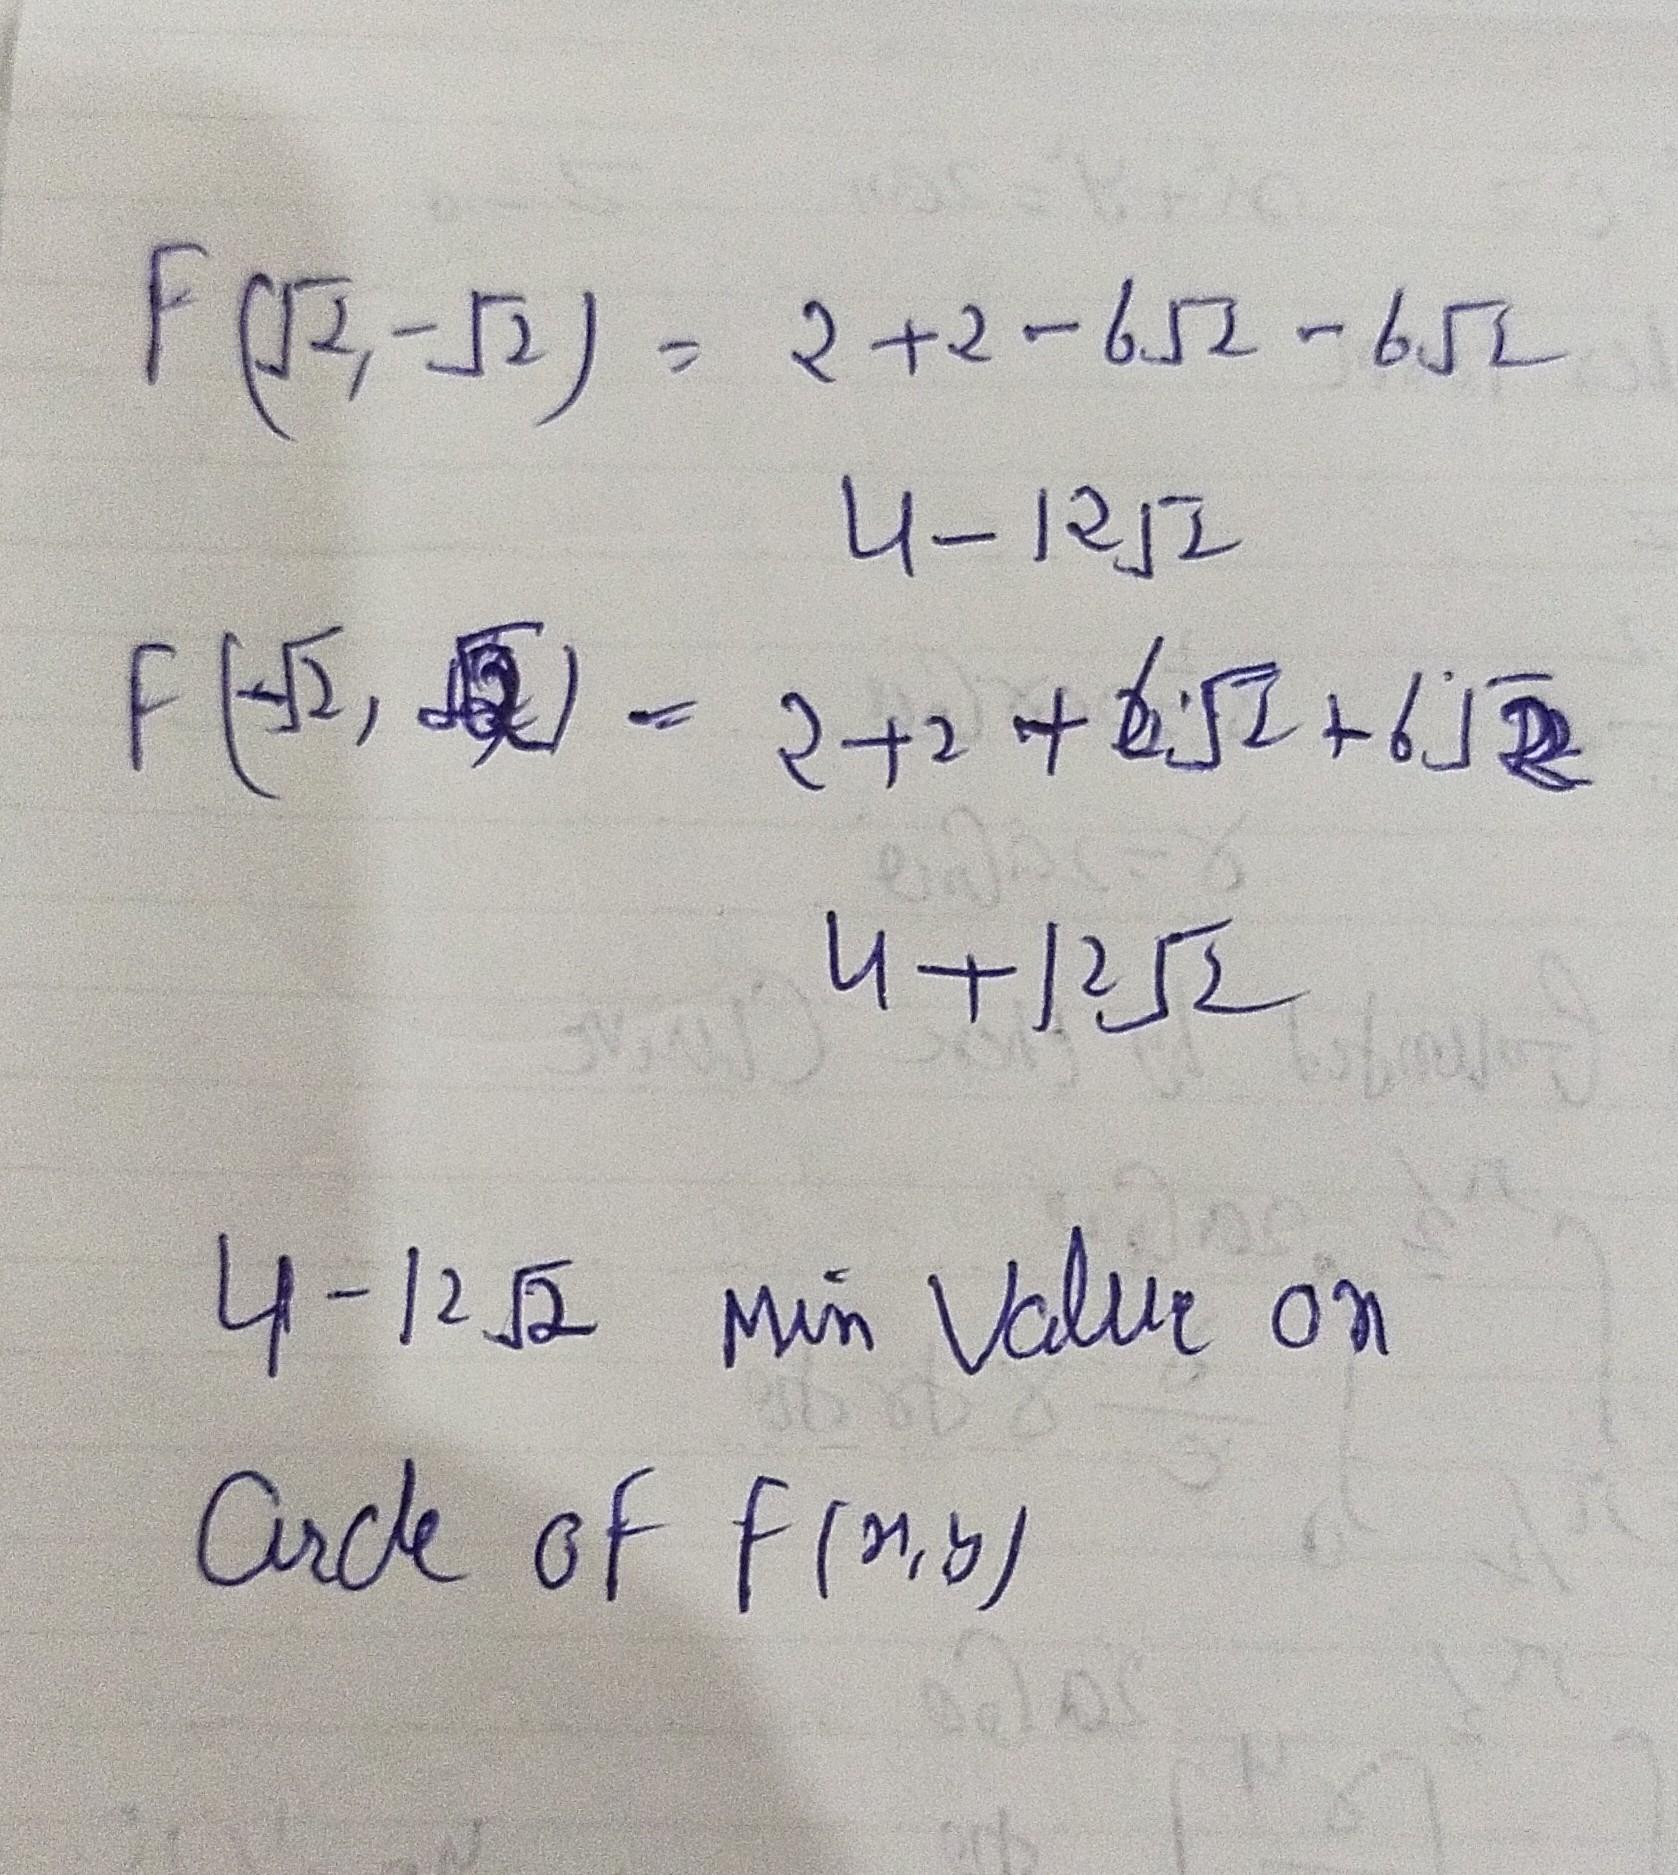 F(√2, -√2) = 2+2-6√2 - 6√2
4-12√2
F(-√2, √2) = 2+2+6√2+6√2
4+12√2
4-12√2 Min Value on
Circle of F(x,y)